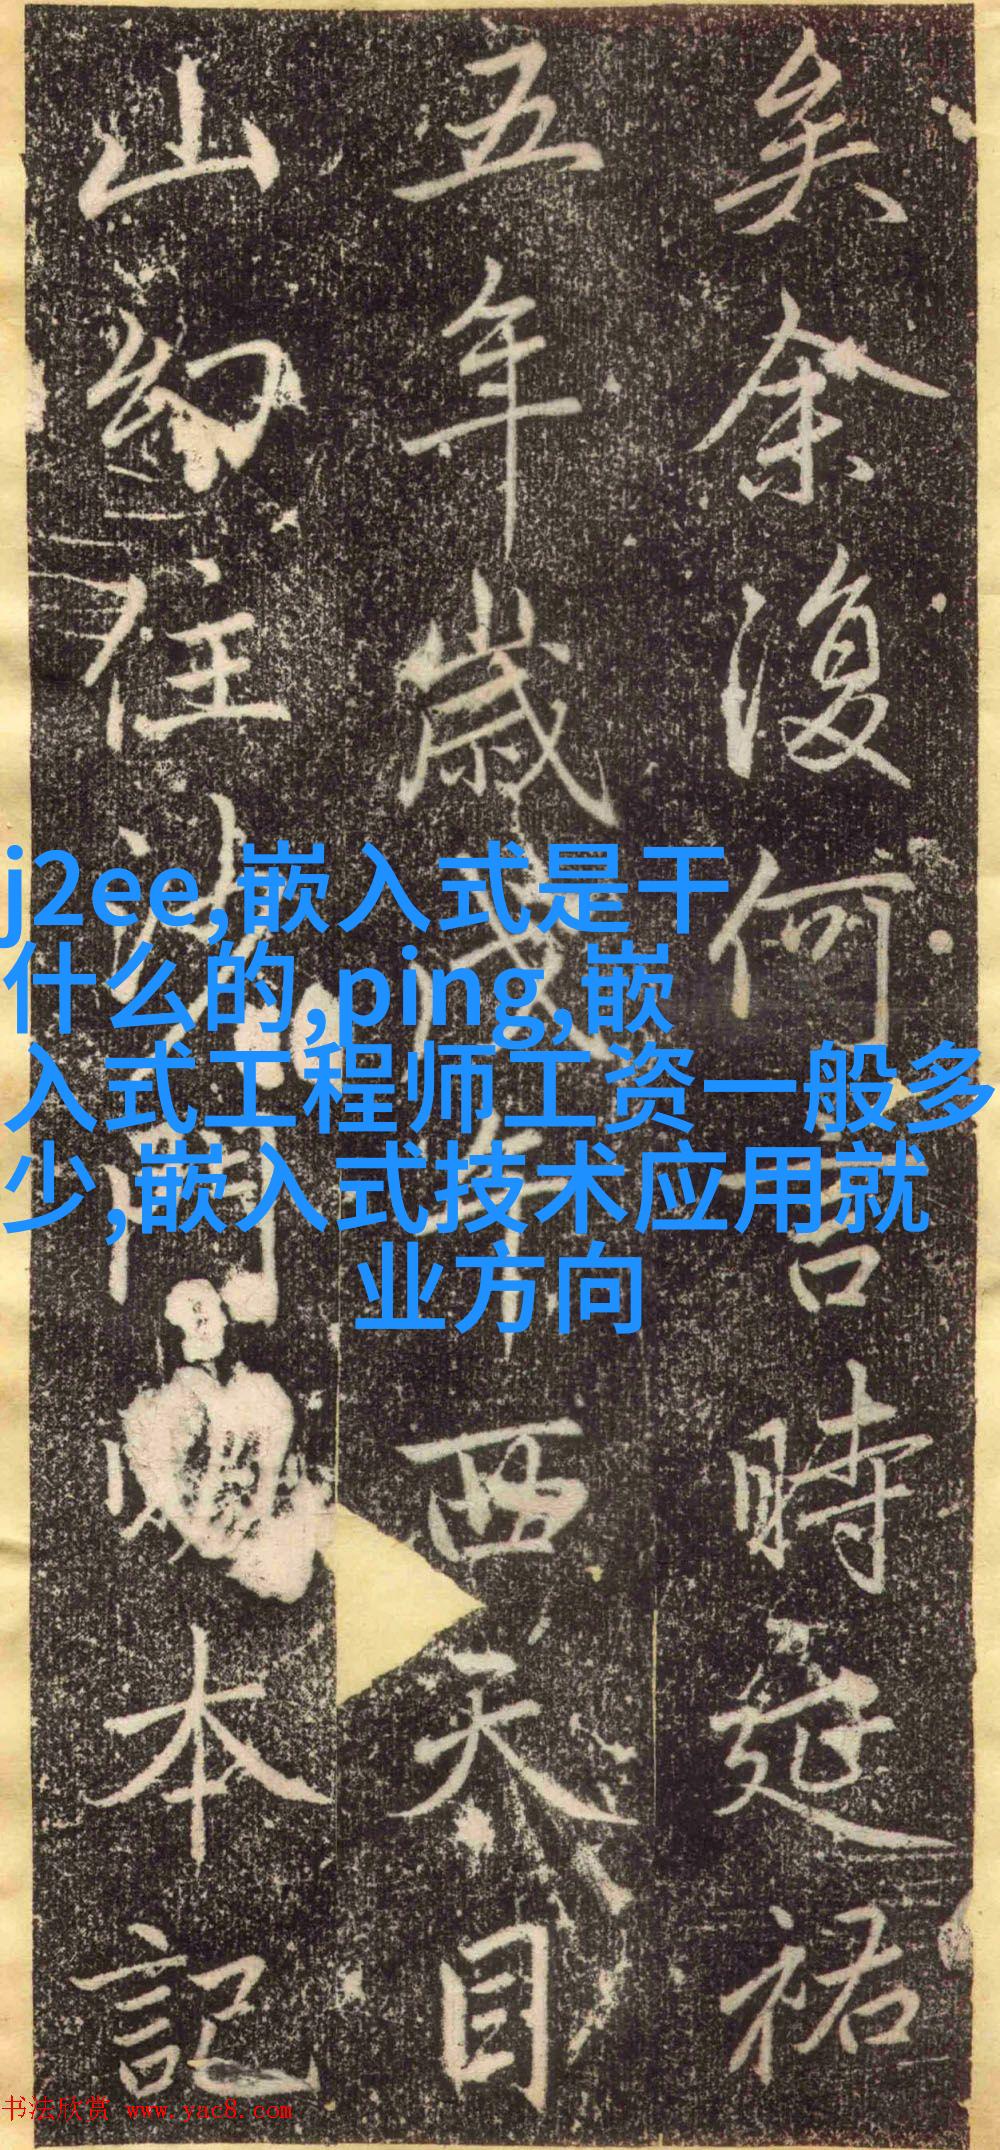 矣余復何言時延祐
五年歲戊午西天目
山幻住沙門本記
j2ee,嵌入式是干
什么的,ping,嵌
入式工程师工资一般多
少,嵌入式技术应用就
业方向
书法欣赏 www.yac8.com